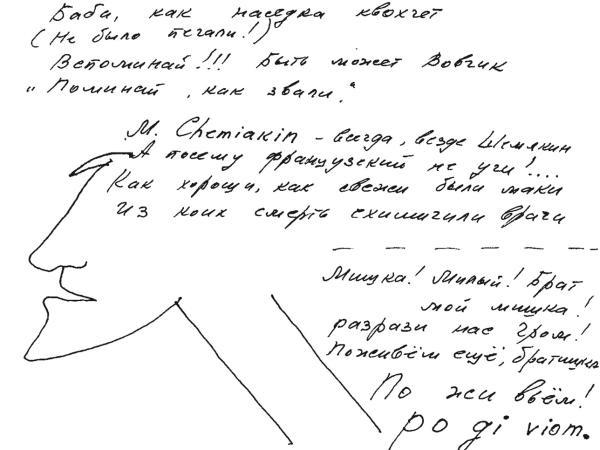 Баба, как наседка квохчет
(Не было печали!)
Вспоминай!!! Быть может Вовчик
„Поминай, как звали."
М. Chemiakin – всегда, везде Шемякин
А посему французский не учи!....
Как хороши, как свежи были маки
Из коих смерть схимичили врачи
Мишка! Милый! Брат
мой мишка!
разрази нас Гром!
Поживём ещё, братишка
По жи вьём!
po gi viom.